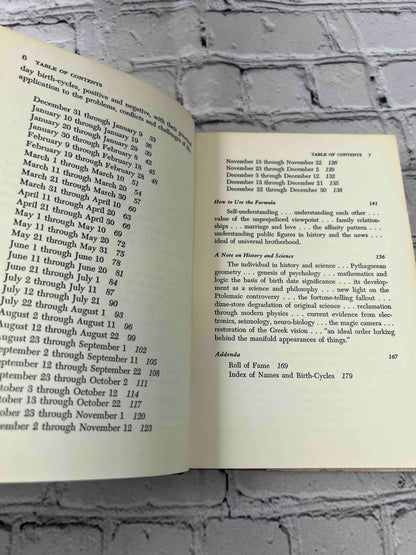 6 TABLE OF CONTENTS
day birth-cycles, positive and negative, with their practical
application to the problems, conflicts and challenges of
December 31 through January 9 33
January 10 through January 19 36
January 20 through January 29 39
January 30 through February 8 42
February 9 through February 18 45
February 19 through February 28 48
March 1 through March 10 51
March 11 through March 20 54
March 21 through March 30 57
March 31 through April 10 60
April 11 through April 20 63
April 21 through April 30 66
May 1 through May 10 69
May 11 through May 20 72
May 21 through May 31 75
June 1 through June 10 78
June 11 through June 20 81
June 21 through July 1 84
July 2 through July 11 87
July 12 through July 21 90
July 22 through August 1 93
August 2 through August 11 96
August 12 through August 22 99
August 23 through September 1 102
eptember 2 through September 11 105
eptember 12 through September 22 108
eptember 23 through October 2 111
ctober 3 through October 12 114
ctober 13 through October 22 117
ctober 23 through November 1 120
ovember 2 through November 12 123
TABLE OF CONTENTS 7
November 13 through November 22 126
November 23 through December 2 129
December 3 through December 12 132
December 13 through December 21 135
December 22 through December 30 138
How to Use the Formula 141
Self-understanding . . . understanding each other . . .
value of the unprejudiced viewpoint . . . family relation-
ships . . . marriage and love . . . the affinity pattern . . .
understanding public figures in history and the news . . .
ideal of universal brotherhood.
A Note on History and Science 156
The individual in history and science . . . Pythagorean
geometry . . . genesis of psychology . . . mathematics and
logic the basis of birth date significance . . . its develop-
ment as a science and philosophy . . . new light on the
Ptolemaic controversy . . . the fortune-telling fallout . . .
dime-store degradation of original science . . . reclamation
through modern physics . . . current evidence from elec-
tronics, seismology, neuro-biology . . . the magic camera . . .
restoration of the Greek vision . . . "an ideal order lurking
behind the manifold appearances of things."
Addenda 167
Roll of Fame 169
Index of Names and Birth-Cycles 179